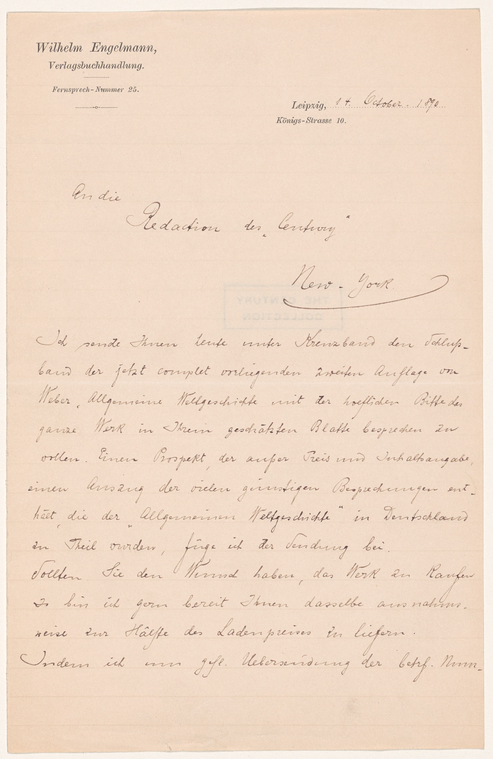 Wilhelm Engelmann,
Verlagsbuchhandlung.
Fernsprech-Nummer 25.
Leipzig, 14. October. 1890
Königs-Strasse 10.
An die
Redaction des „Century"
New-York.
THE CENTURY
COLLECTION
Ich sende Ihnen heute unter Kreuzband den Schluss-
band der jetzt complet vorliegenden zweiten Auflage von
Weber, Allgemeine Weltgeschichte mit der hoeflichen Bitte das
ganze Werk in Ihrem geschätzten Blatte besprechen zu
wollen. Einen Prospekt, der außer Preis und Inhaltsangabe,
einen Auszug der vielen günstigen Besprechungen ent-
hält, die der „Allgemeinen Weltgeschichte" in Deutschland
zu Theil wurden, füge ich der Sendung bei.
Sollten Sie den Wunsch haben, das Werk zu kaufen
so bin ich gern bereit Ihnen dasselbe ausnahms-
weise zur Hälfte des Ladenpreises zu liefern.
Indem ich um gefl. Uebersendung der betrf. Num-